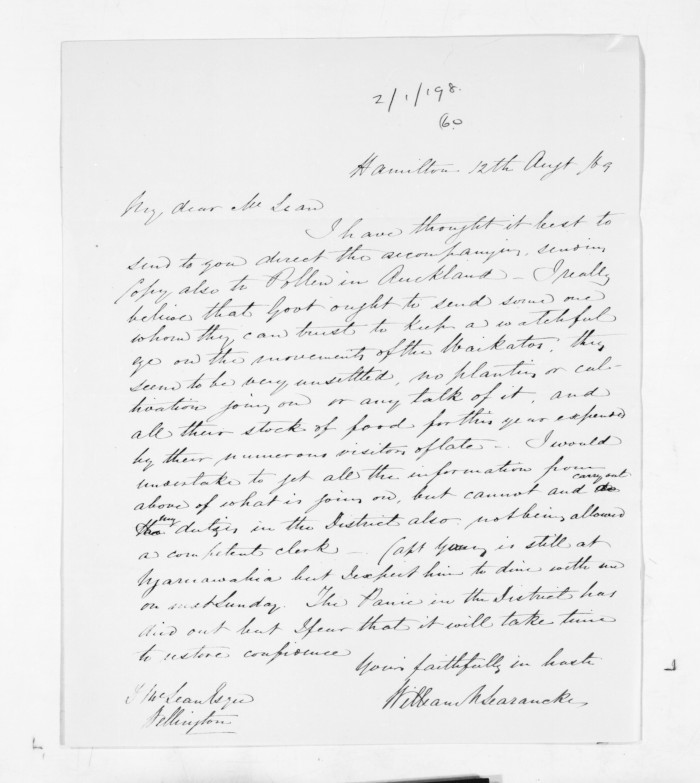 2/1/198.
60
Hamilton 12th Augt /69
My dear McLean
I have thought it best to
send to you direct the accompanying, sending
Copy also to Pollen in Auckland - I really
believe that Govt ought to send some one
whom they can trust to keep a watchful
eye on the movements of the Waikatos, they
seem to be very unsettled, no planting or cul-
tivation going on or any talk of it, and
all their stock of food for this year expended
by their numerous visitors of late -. I would
undertake to get all the information from
above of what is going on, but cannot and carry out
my duties in the District also, not being allowed
a competent clerk - Capt is still at
Ngaruawahia but I expect him to dine with me
on next Sunday. The Panic in the District has
died out but I fear that it will take time
to restore confidence
Yours faithfully in haste
William N Searancke
McLean Esqre
Wellington